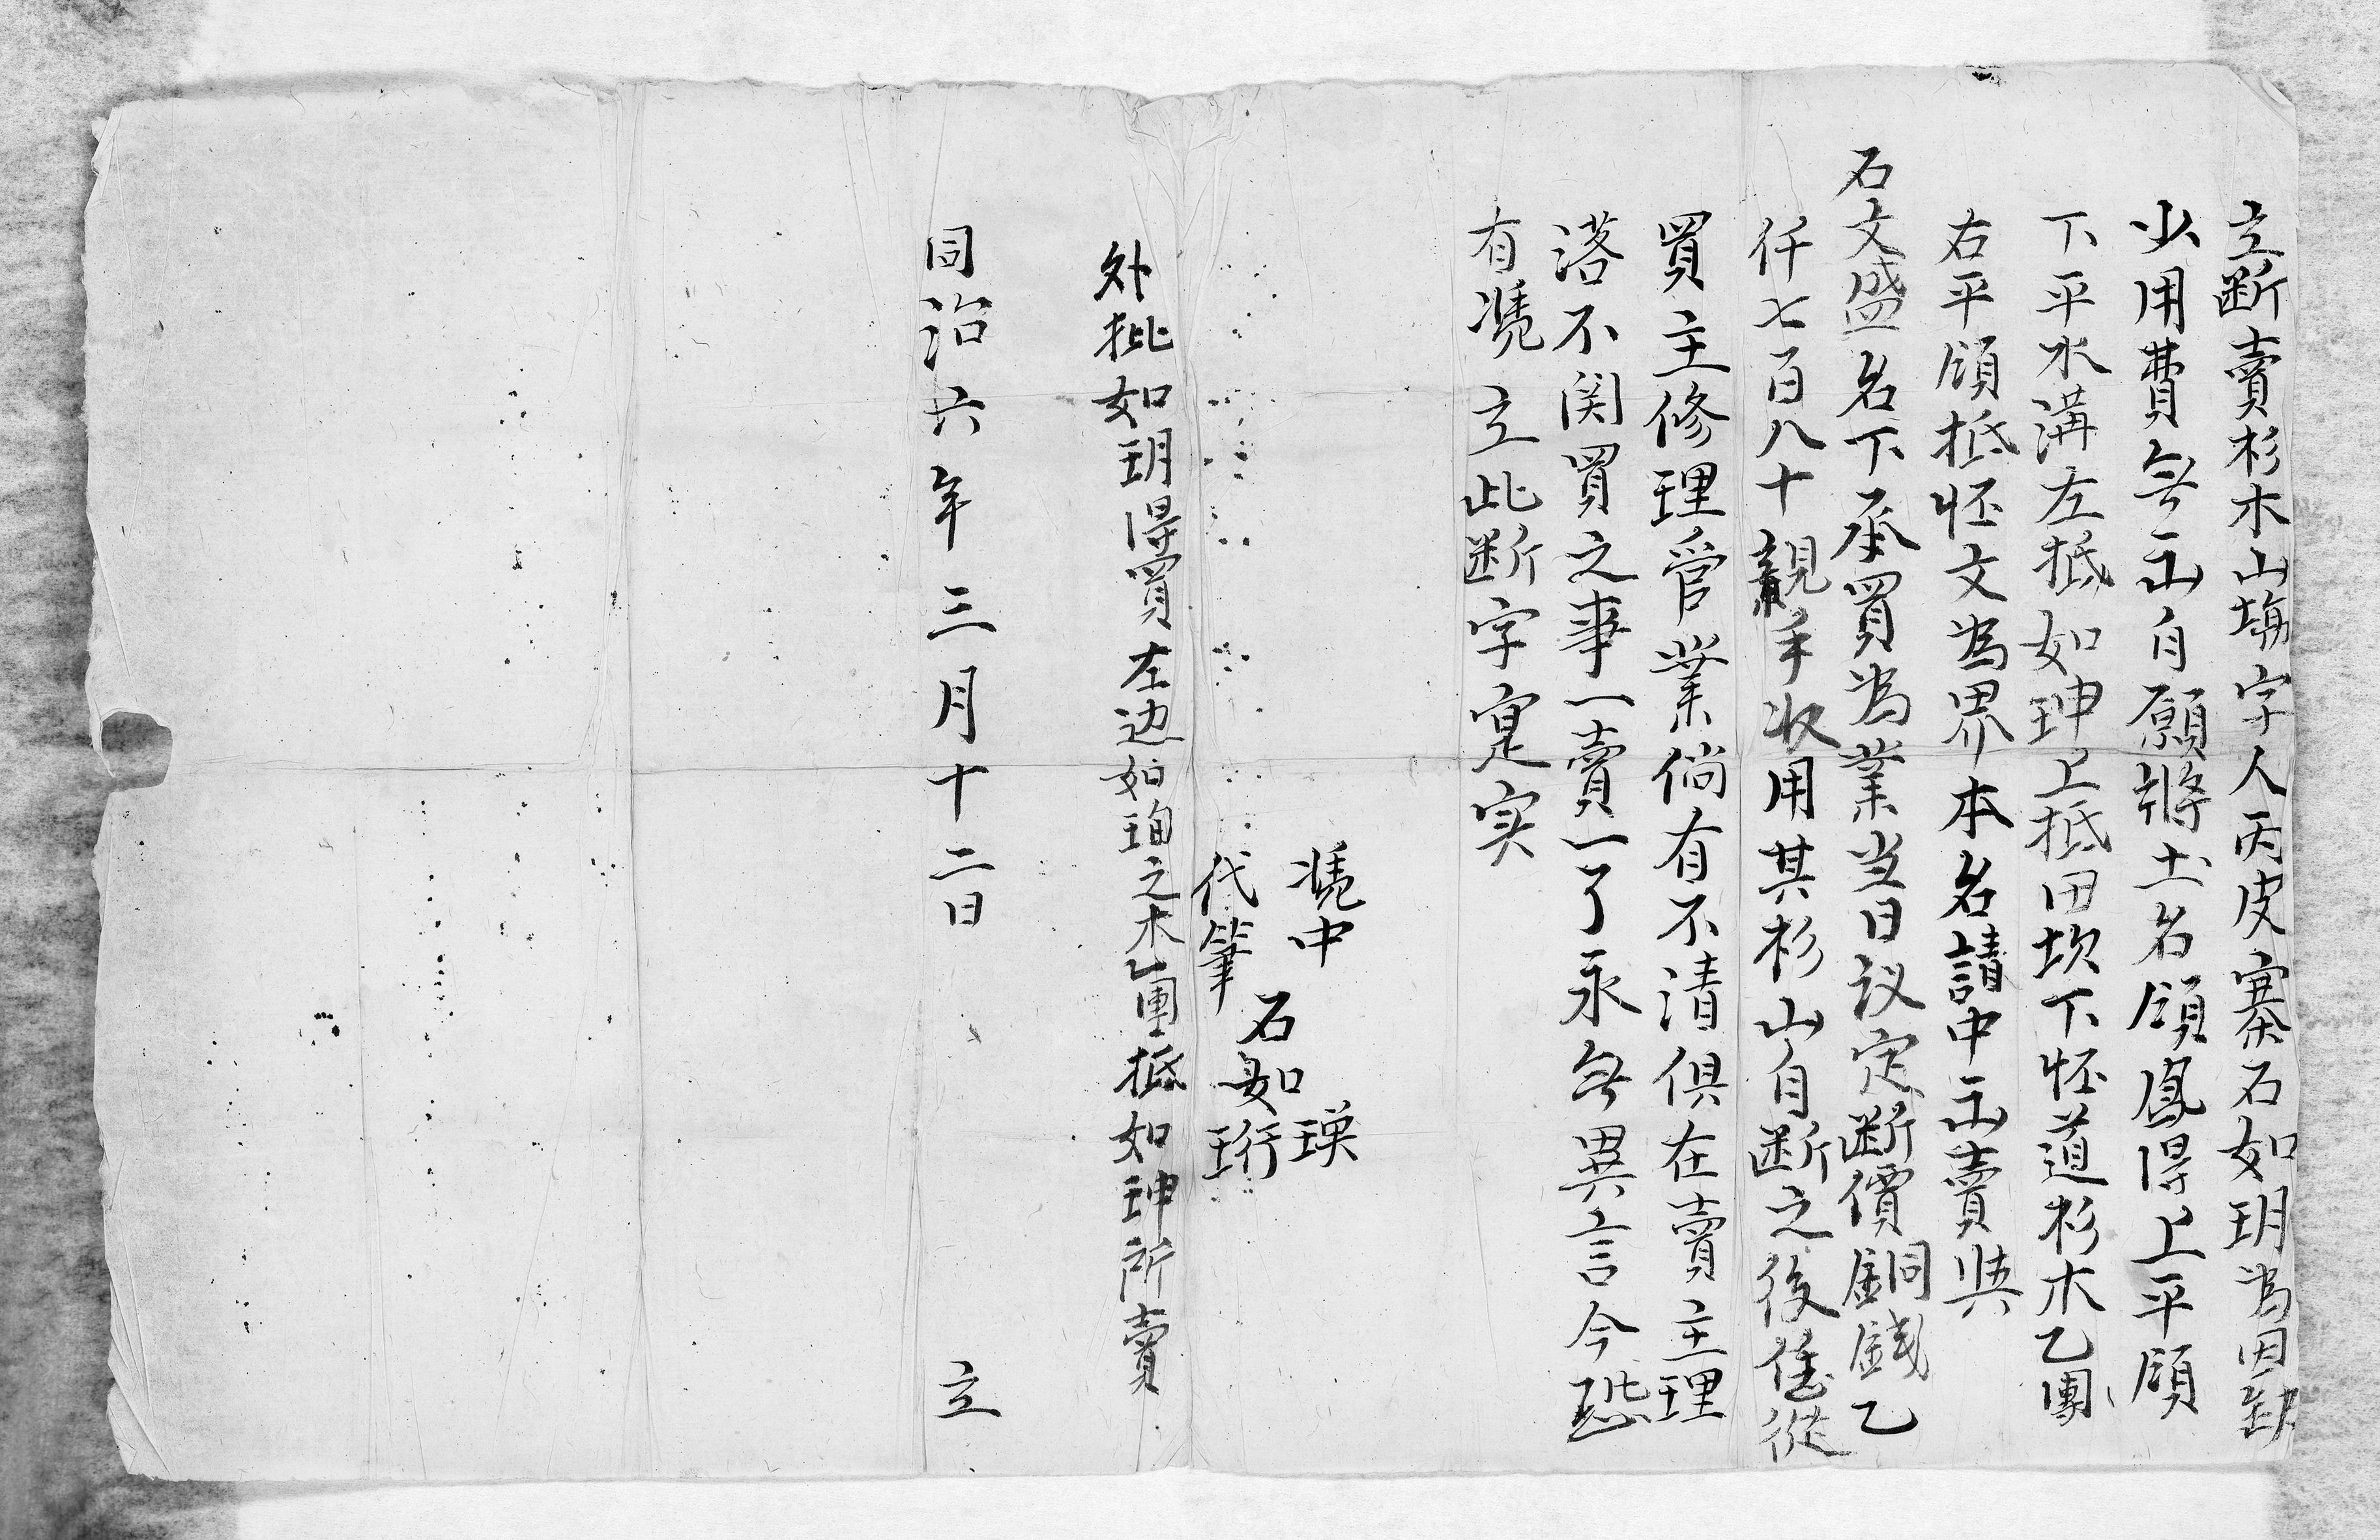 立断賣杉木山塲字人丙皮寨石如玥為因缺
少用費無出自願將土名領鳳得上平領
下平水溝左抵如珅上抵田坎下怌道杉木乙團
右平領抵怌文為界本名請中出賣與
石文盛名下承買為業当日议定断價銅錢乙
仟七百八十親手收用其杉山自断之後任從
買主修理管業倘有不清俱在賣主理
落不関買之事一賣一了永無異言今恐
有凴立此断字寔实
凴中 石如瑛
代筆 石如珩
外批如玥得買左边如珣之木乙團抵如珅所賣
同治六年三月十二日 立